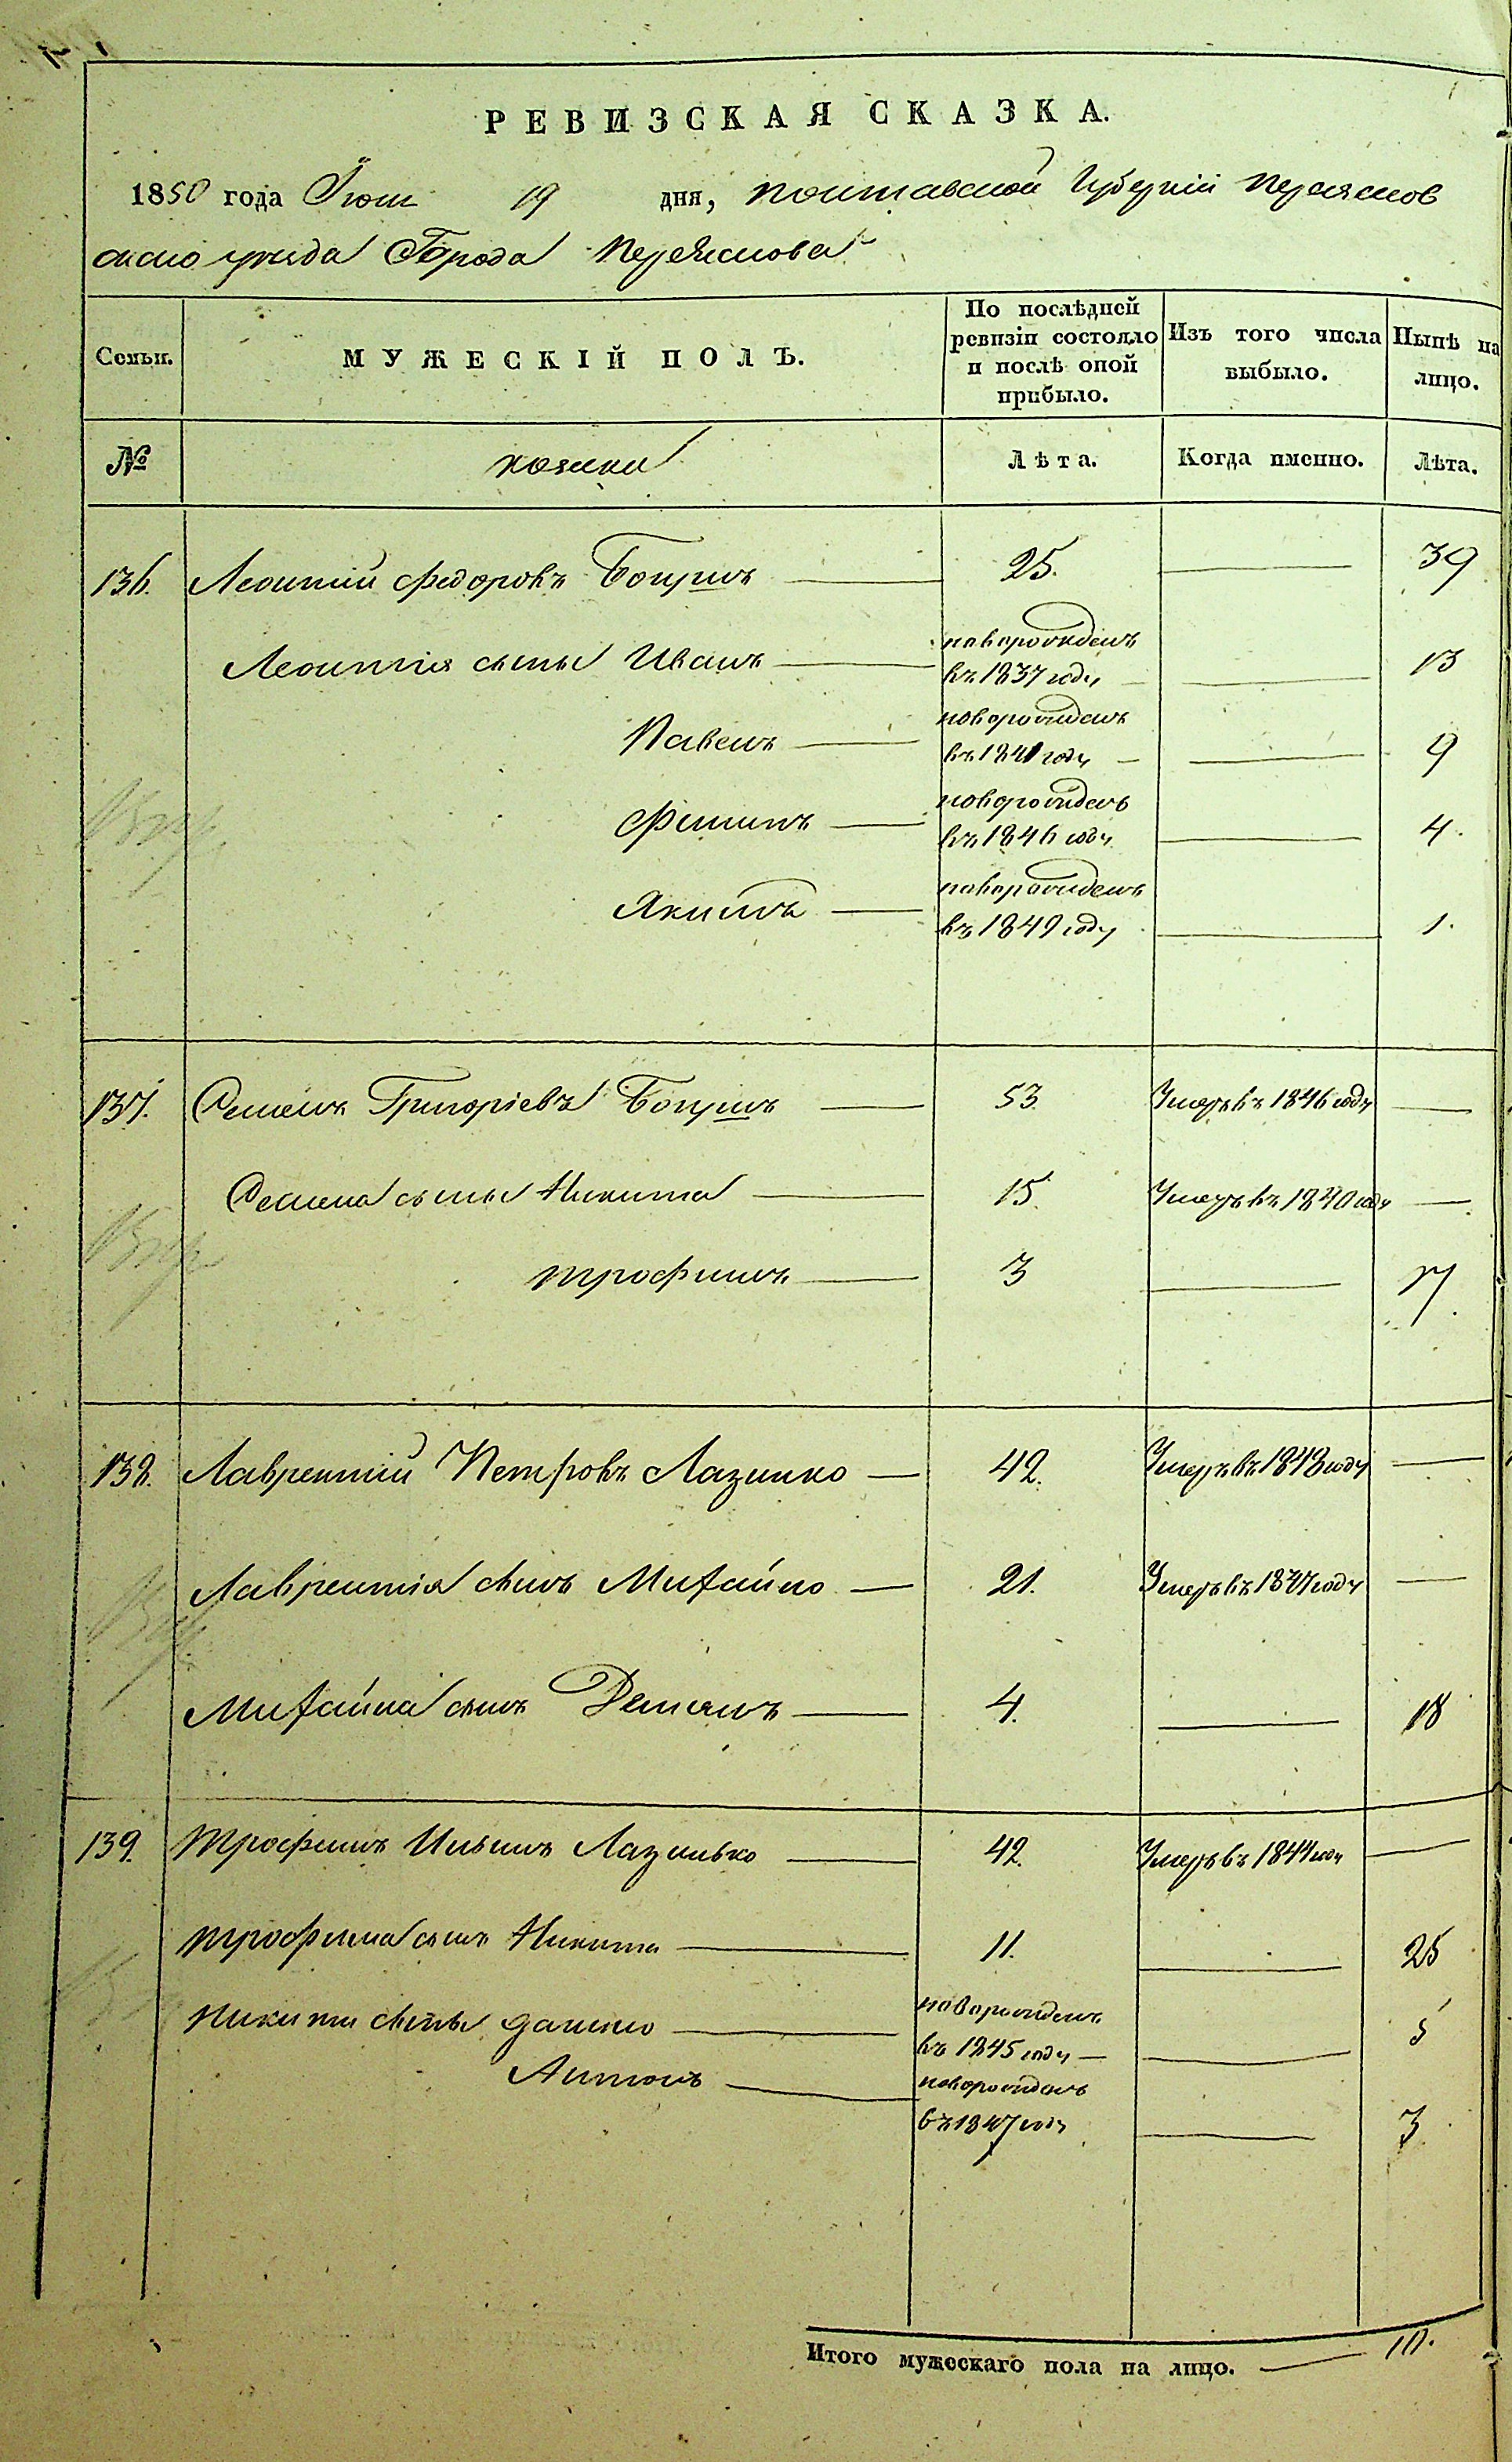 РЕВИЗСКАЯ СКАЗКА.
1850 года Іюня 19 дня, Полтавской Губерніи Переяслов
скаго уезда Города Переяслова
Семьи. МУЖЕСКІЙ ПОЛЪ. По послѣдней ревизіи состояло и послѣ оной прибыло. Изъ того числа выбыло. Нынѣ на лицо.
№ козаки Лѣта. Когда именно. Лѣта.
136. Леонтий Федоровъ 25. 39
Леонтия сыны Иванъ новорожденъ въ 1837 году 13
Павелъ новорожденъ въ 1841 году 9
Филипъ новорожденъ въ 1846 году 4.
Якимъ новорожденъ въ 1849 году 1.
137. Семенъ Григоріевъ 53 Умеръ въ 1846 году
Семена сыны Никита 15. Умеръ въ 1840 году
Трофимъ 3 17.
138. Лаврентий Петровъ Лазинко 42. Умеръ въ 1843 году
Лаврентия сынъ Михайло 21. Умеръ въ 1847 году
Михайла сынъ Демянъ 4. 18
139. Трофимъ Ильинъ Лазинько 42. Умеръ въ 1844 году
Трофима сынъ Никита 11. 25
Никиты сыны Данило новорожденъ въ 1845 году 5
Антонъ новорожденъ въ 1847 году 3
Итого мужескаго пола на лицо. 10.